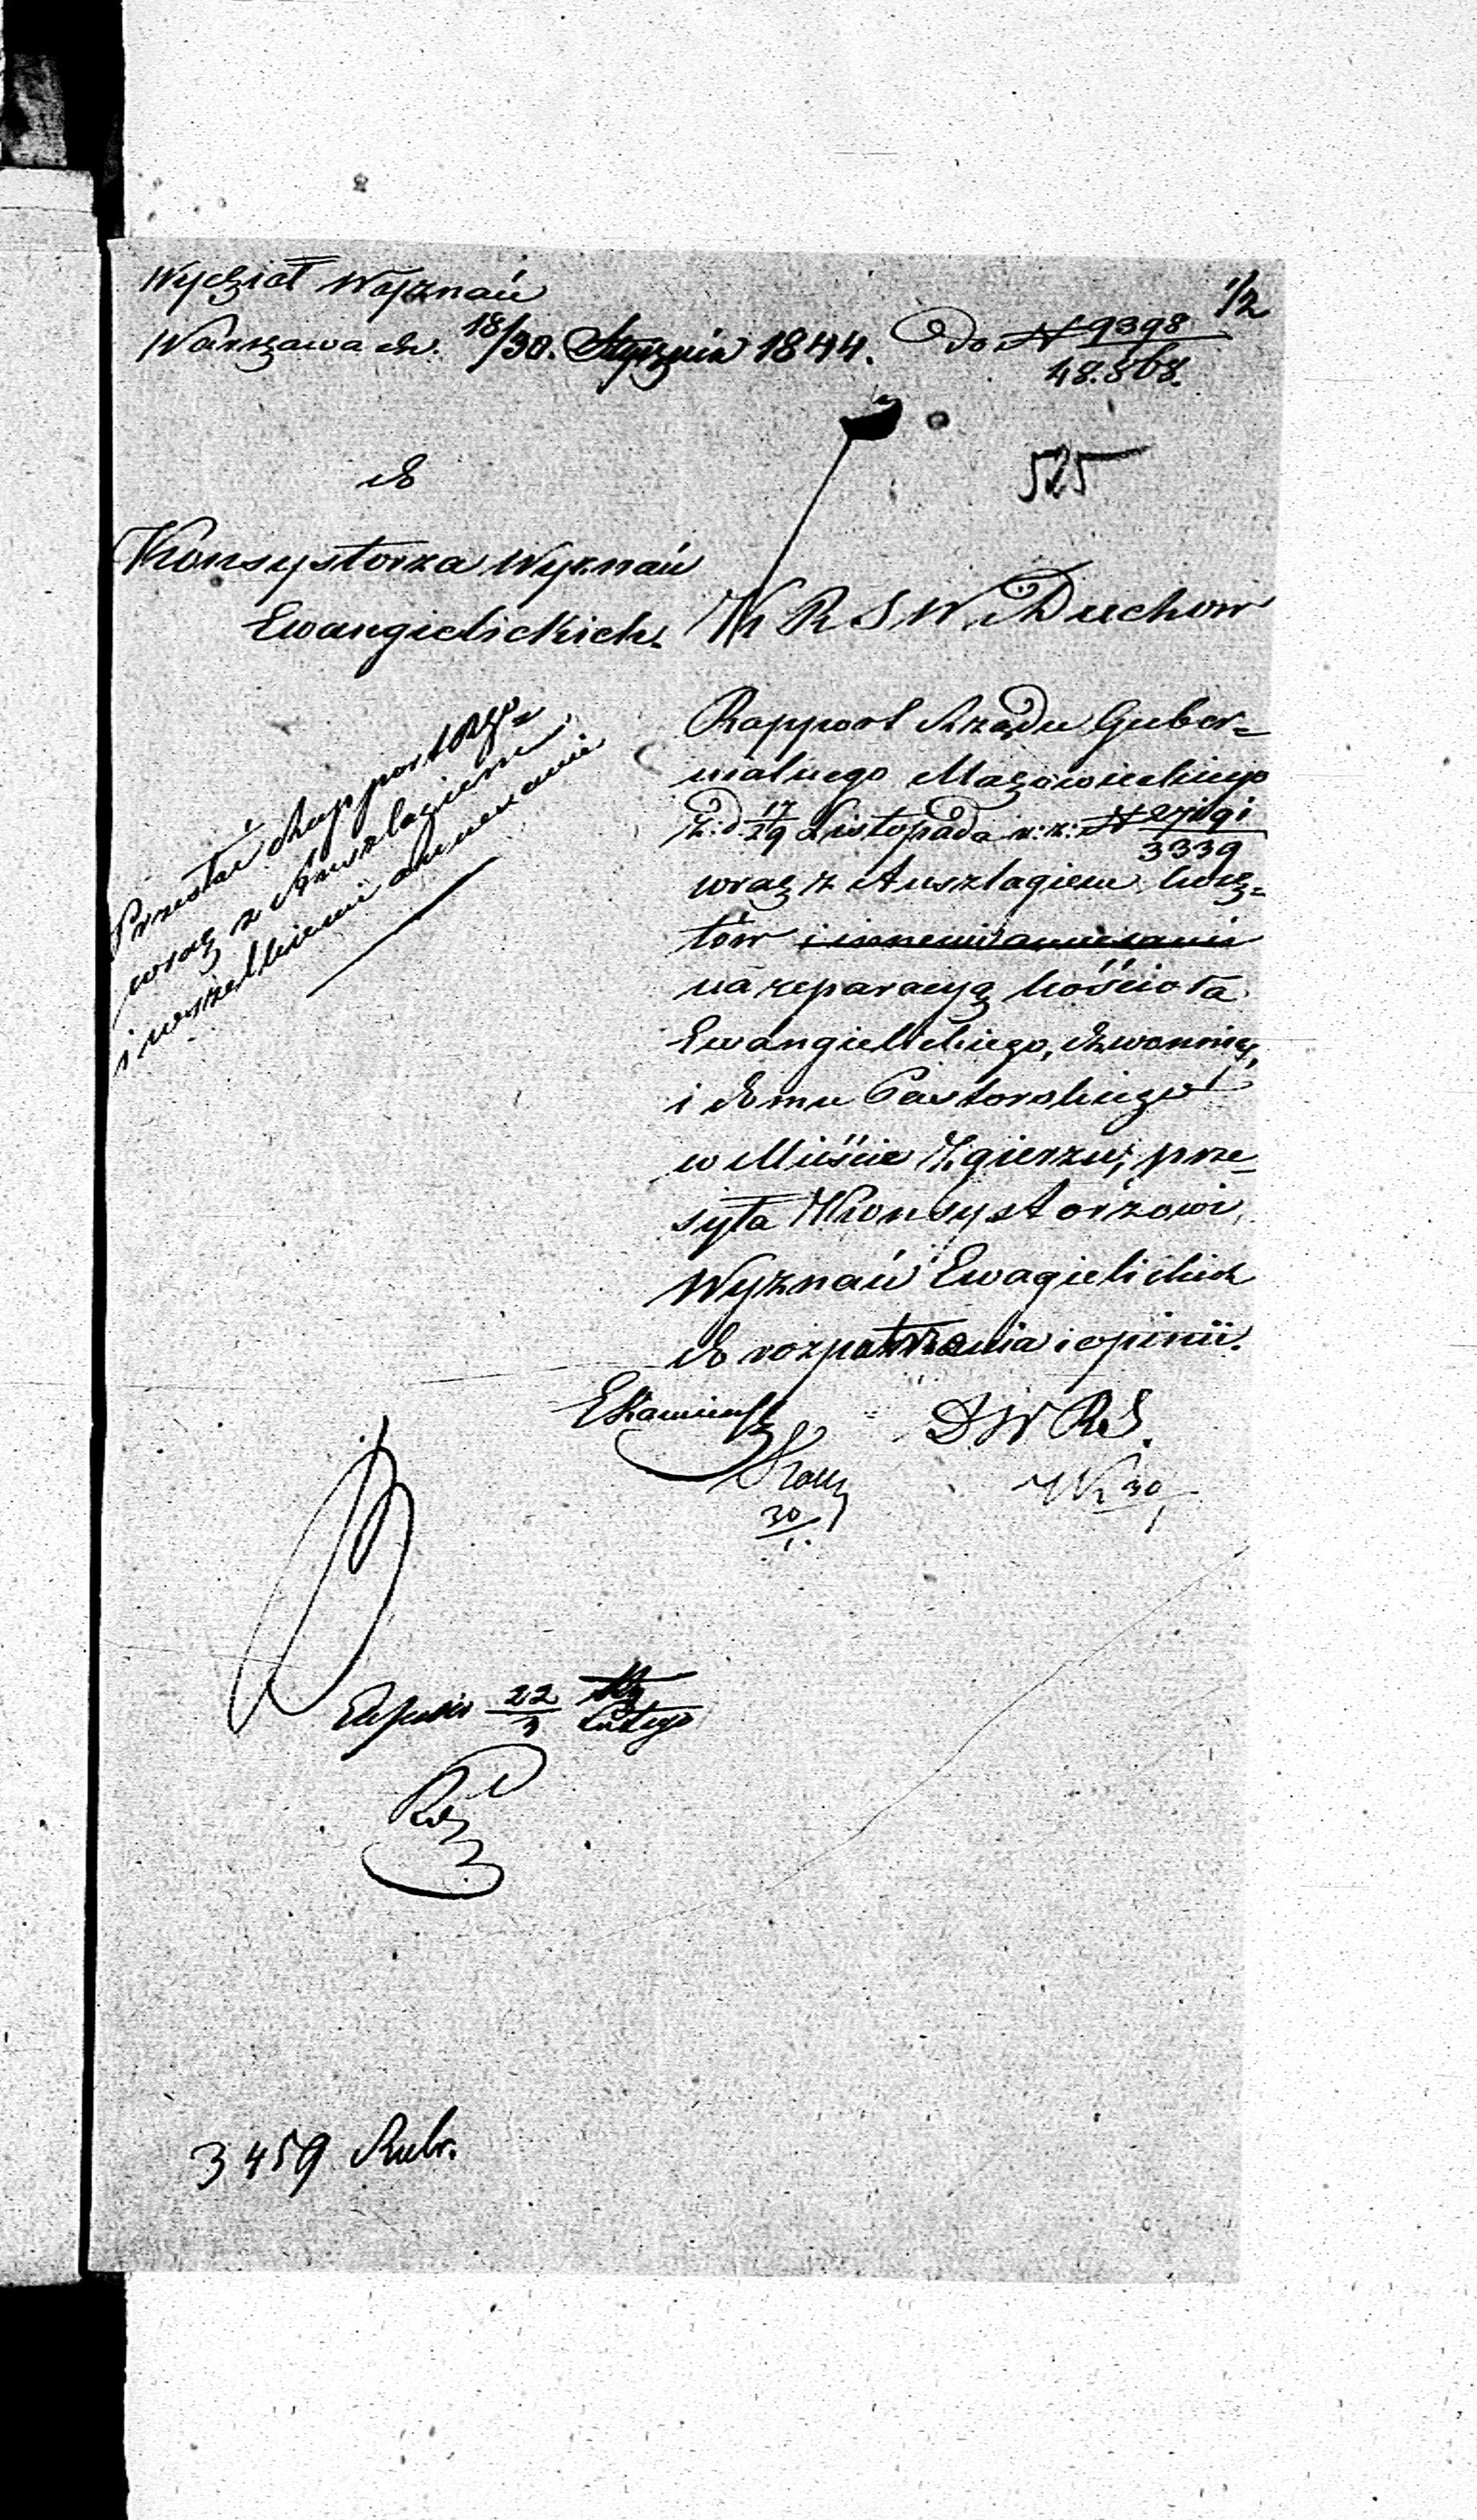 Wydział Wyznań
1/2
Warszawa dn. 18/30. Stycznia 1844. Do N 9398
48.868.
525
do
Konsystorza Wyznań
Ewangielickich.
K R S W i Duchow
Rapport Rządu Guber-
nialnego Mazowieckiego
z: d 17/29 Listopada r: z: N
3339
wraz z Anszlagiem kosz-
tów i innemi annexami
na reparacyą kościoła
Ewangielickiego, dzwonnicy,
i domu Pastorskiego
w Mieście Zgierzu, prze-
syła Konsystorzowi
Wyznań Ewagielickich
do rozpatrzenia i opinii.
Przesłać Rapport
wraz z Anszlagiem
i wszelkiemi annexami
D W R S.
30/1
30/1
22/3 Lutego
3459 Rubr.